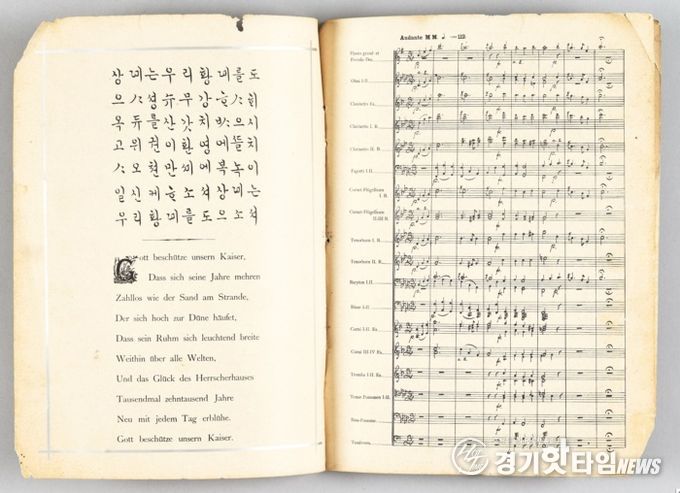 상뎨는우리황뎨를도
으ᄉᆞ셩슈무강ᄒᆞᄉᆞᄒᆡ
옥듀를산갓치ᄡᆞ으시
고위권이환영에ᄯᅥᆯ치
ᄉᆞ오쳔만세에복녹이
일신케ᄒᆞ소셔상뎨는
우리황뎨를도으소셔
Gott beschütze unsern Kaiser,
Dass sich seine Jahre mehren
Zahllos wie der Sand am Strande,
Der sich hoch zur Düne häufet,
Dass sein Ruhm sich leuchtend breite
Weithin über alle Welten,
Und das Glück des Herrscherhauses
Tausendmal zehntausend Jahre
Neu mit jedem Tag erblühe.
Gott beschütze unsern Kaiser.
Andante M M
Oboi I-II
Clarinetto Es.
Clarinetto I. B.
Clarinetto II. B.
Fagotti I-II
Cornet-Flügelhorn
I. B.
Cornet-Flügelhorn
II-III B.
Tenorhorn I. B.
Tenorhorn II. B.
Baryton I-II
Bässe I-II
Corni I-II Es.
Corni III-IV Es.
Tromba I-II Es.
Tenor Posaunen I-II
Tamburo.
경기핫타임NEWS